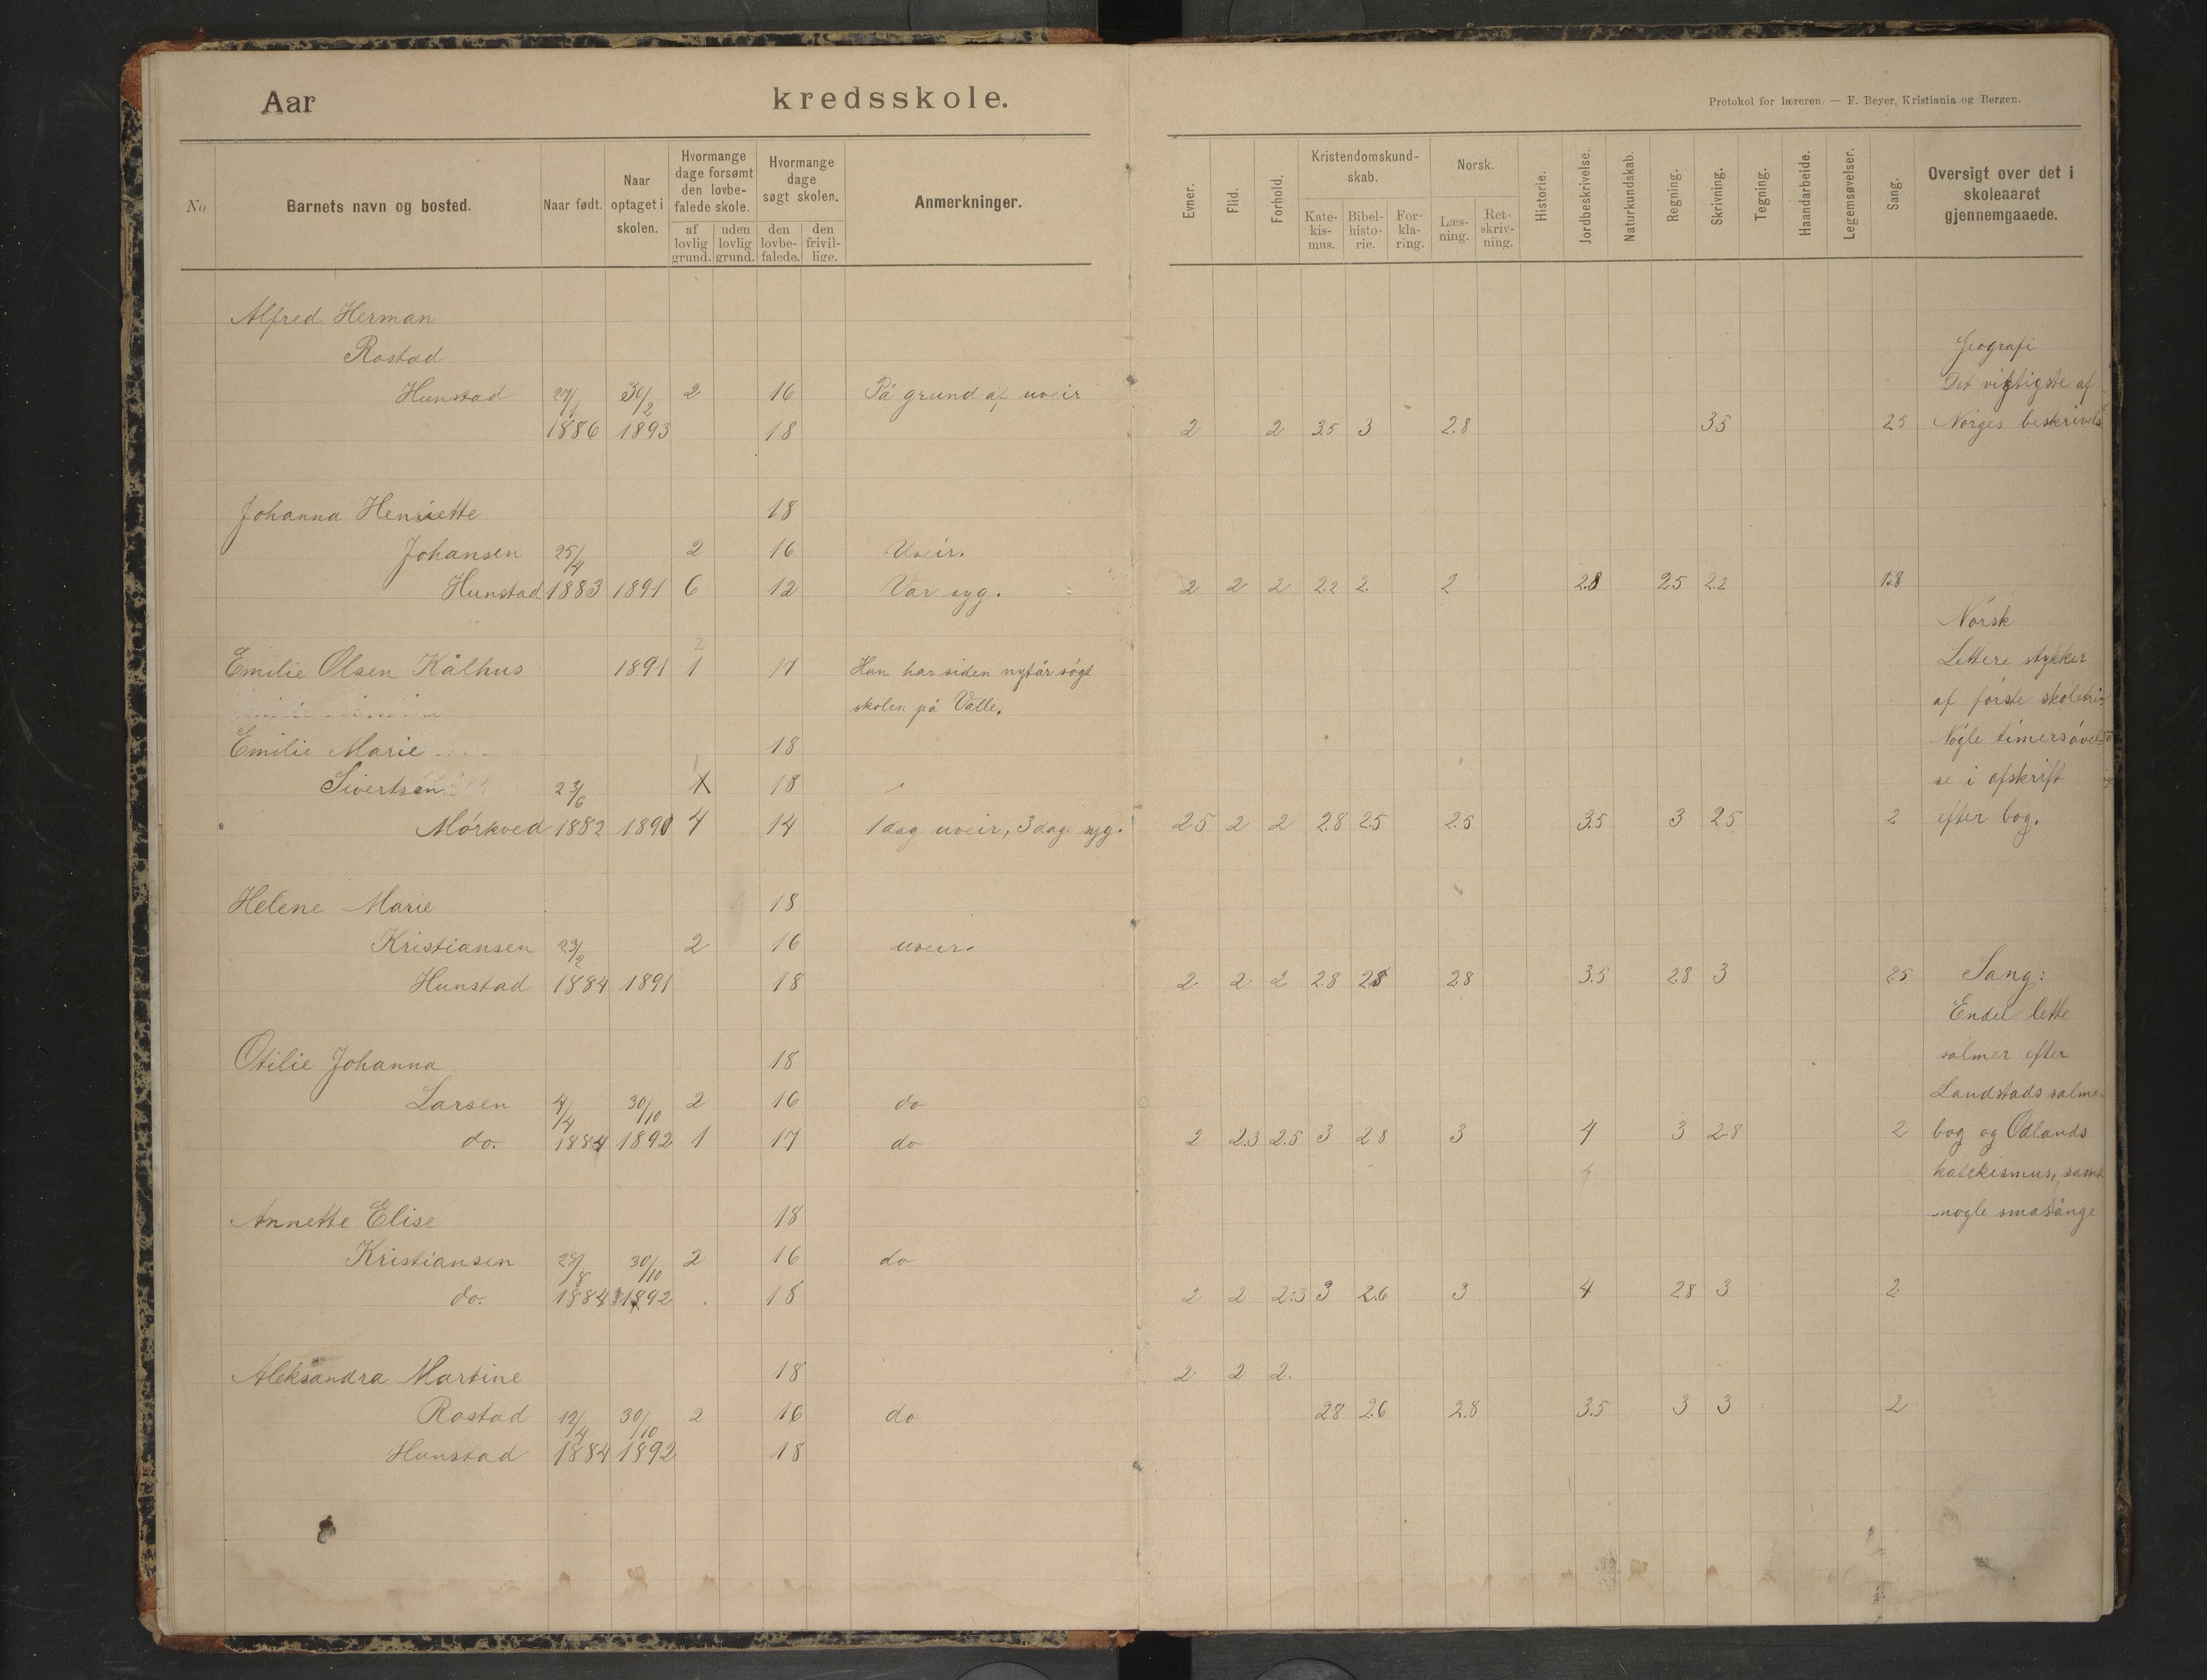 Aar kredsskole.
Protokol for læreren. — F. Beyer, Kristiania og Bergen.
No
Barnets navn og bosted.
Naar født.
Naar optaget i skolen.
Hvormange dage forsømt den lovbefalede skole.
af lovlig grund.
uden lovlig grund.
Hvormange dage søgt skolen.
den lovbefalede.
den frivillige.
Anmerkninger.
Evner.
Flid.
Forhold.
Kristendomskundskab.
Katekismus.
Bibelhistorie.
Forklaring.
Norsk.
Læsning.
Retskrivning.
Historie.
Jordbeskrivelse.
Naturkundskab.
Regning.
Skrivning.
Tegning.
Haandarbeide.
Legemsøvelser.
Sang.
Oversigt over det i skoleaaret gjennemgaaede.
Alfred Herman
Rostad
Hunstad 27/1 30/2 2 16 På grund af uveir
1886 1893 18 2 2 3.5 3 2.8 3.5 2.5
Johanna Henriette 18
Johansen 25/4 2 16 Uveir.
Hunstad 1883 1891 6 12 Var syg. 2 2 2 2.2 2. 2 2.8 2.5 2.2 1.8
2
Emilie Olsen Kålhus 1891 1 17 Hun har siden nytår søgt
skolen på Valle.
Emilie Marie 18
Sivertsen 23/6 18
Mørkved 1882 1890 4 14 1 dag uveir, 3 dage syg. 2.5 2 2 2.8 2.5 2.5 3.5 3 2.5 2
Helene Marie 18
Kristiansen 23/2 2 16 uveir.
Hunstad 1884 1891 18 2 2 2 2.8 2.8 2.8 3.5 2.8 3 2.5
Otilie Johanna 18
Larsen 4/4 30/10 2 16 do
do. 1884 1892 1 17 do 2 2.3 2.5 3 2.8 3 4 3 2.8 2
Annette Elise 18
Kristiansen 28/8 30/10 2 16 do
do. 1884 1892 18 2 2 2.3 3 2.6 3 4 2.8 3 2
Aleksandra Martine 18 2 2 2.
Rostad 12/4 30/10 2 16 do 2.8 2.6 2.8 3.5 3 3 2
Hunstad 1884 1892 18
Geografi
Det vigtigste af
Norges beskrivels
Norsk
Lettere stykker
af første skoletri
Nogle timers øvel
se i afskrift
efter bog.
Sang:
Endel lette
salmer efter
Landstads salme
bog og Odlands
katekismus, samt
nogle småsange